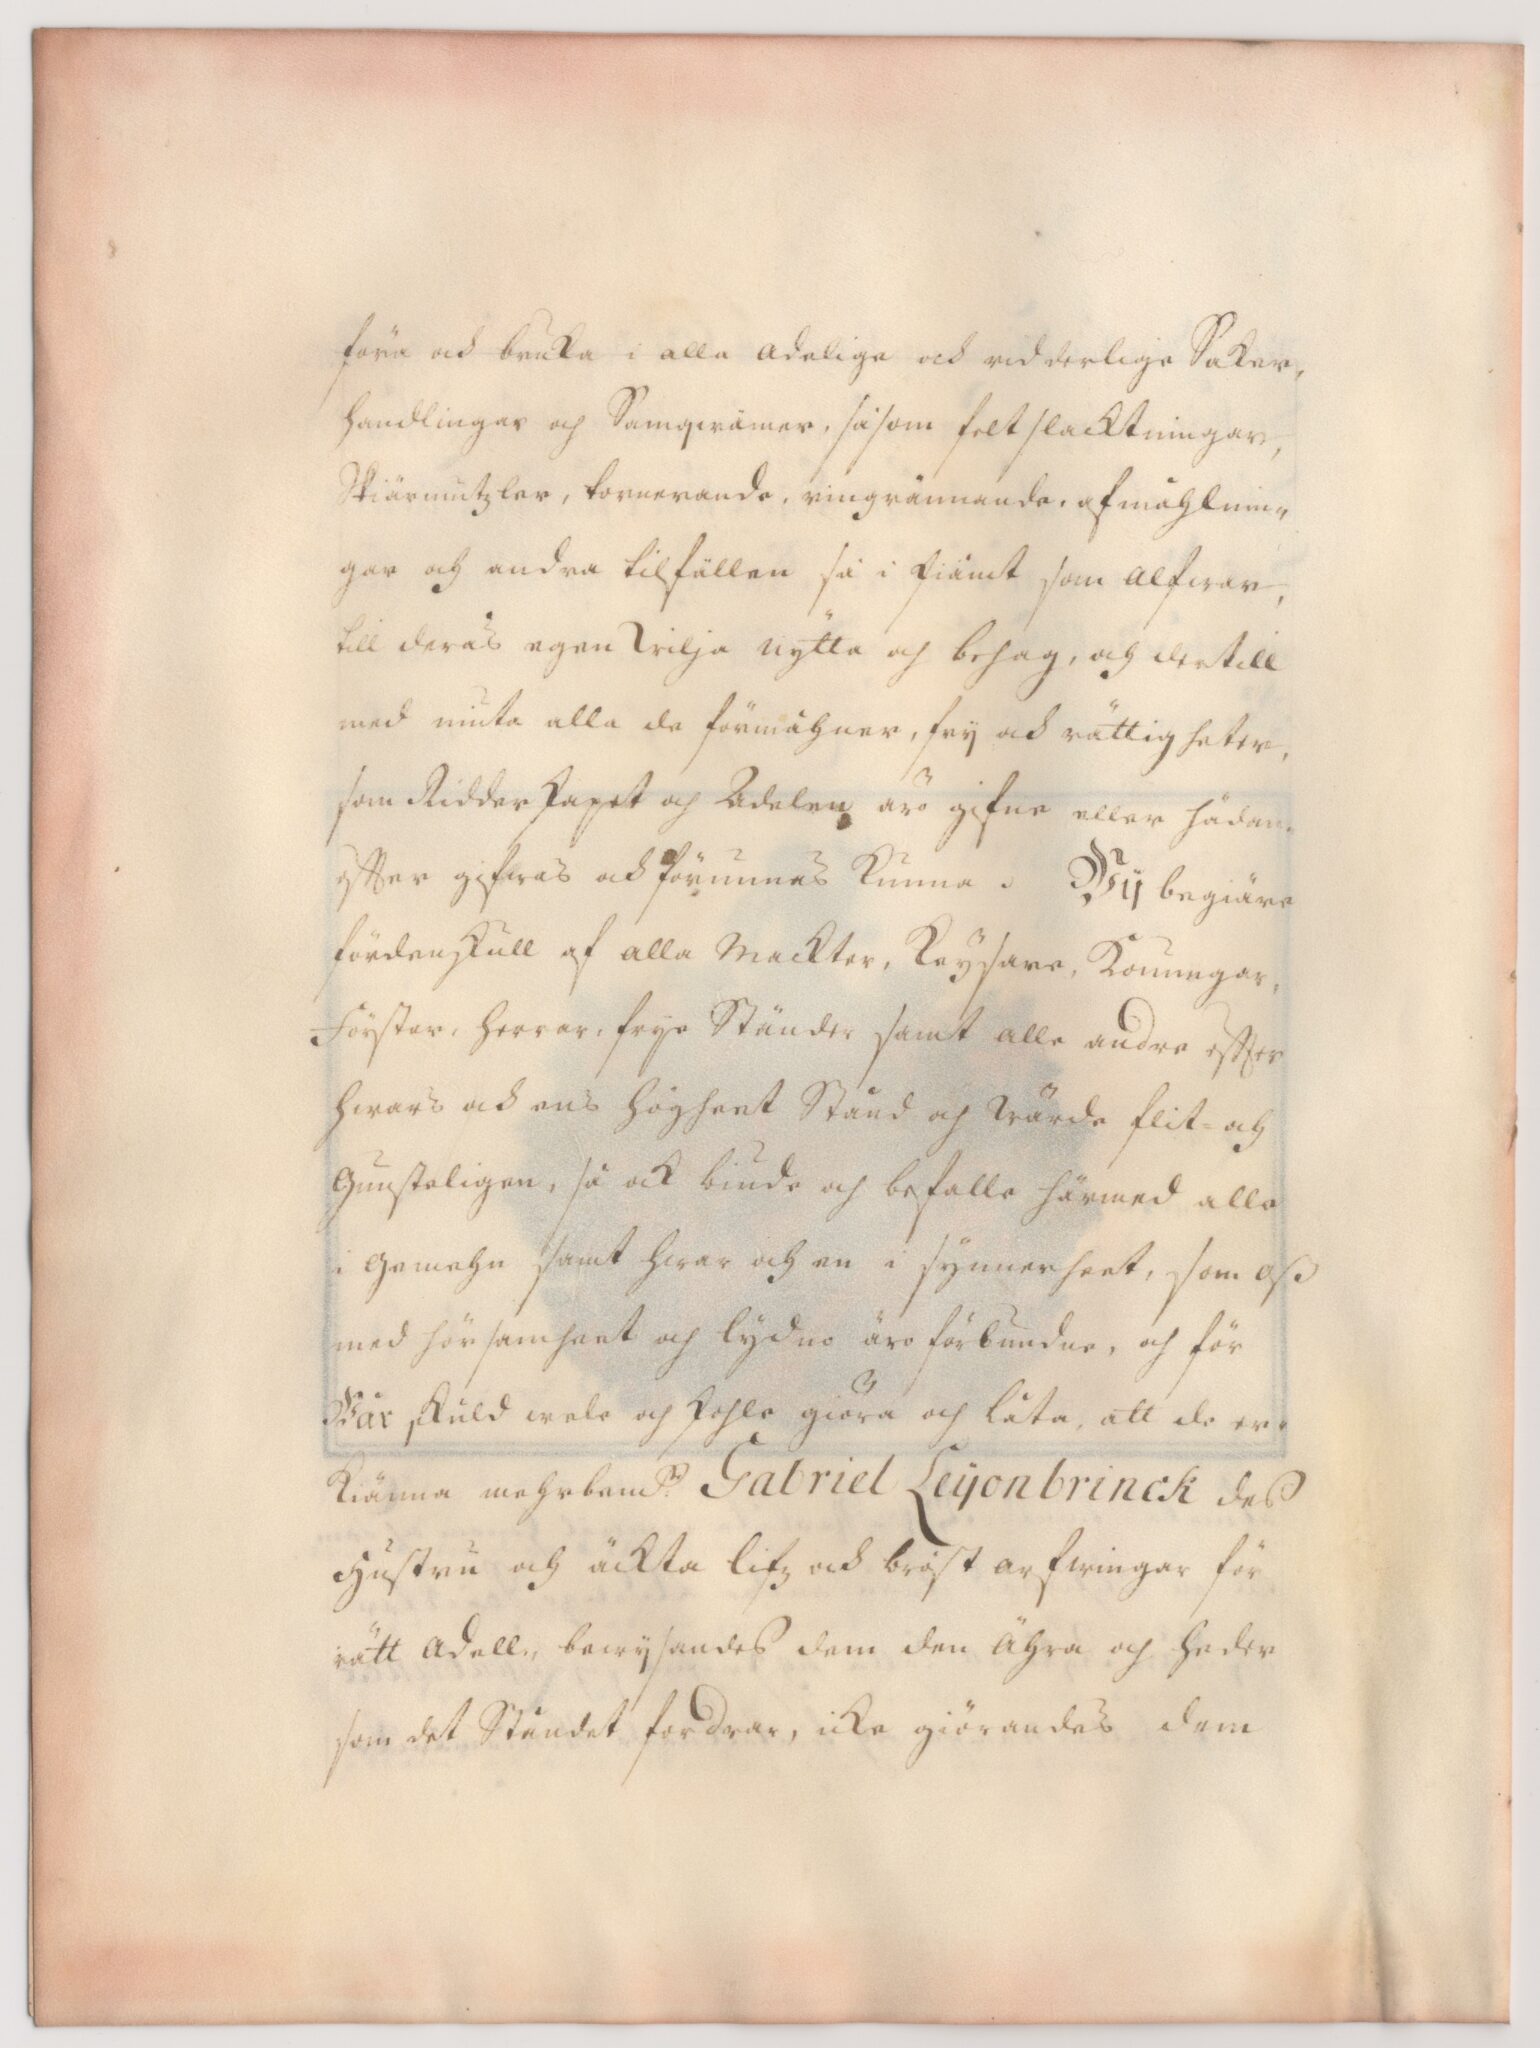 föra och bruka i alla Adelige och ridderlige Saker,
handlingar och Samqwämer, såsom feltslacktningar,
Skiärmützler, tornerande, ringrännande, afmåhlnin-
gar och andra tilfällen så i skiämt som Alfwar,
till deras egen Wilja nytta och behag, och dertill
med niuta alla de förmåhner, fry och rättigheter,
som Ridderskapet och Adelen äro gifne eller hädan-
effter gifwas och förunnas kunna. Wy begiäre
fördenskull af alla Mackter, Keysare, Konungar,
Förster, herrar, frye Ständer samt alle andre effter
hwars och ens högheet Stånd och Wärde flit- och
Gunsteligen, så ock biude och befalle härmed alle
i gemehn samt hwar och en i synnerheet, som Oss
med hörsamheet och lydno äro förbundne, och för
Wår skuld wele och skohle giöra och låta, att de er-
kiänna mehrbem:te Gabriel Leyonbrinck des
Hustru och äckta lifz och bröst arfwingar för
rätt Adell, bewysandes dem den Ähra och heder
som det Ståndet fordrar, icke giörandes dem